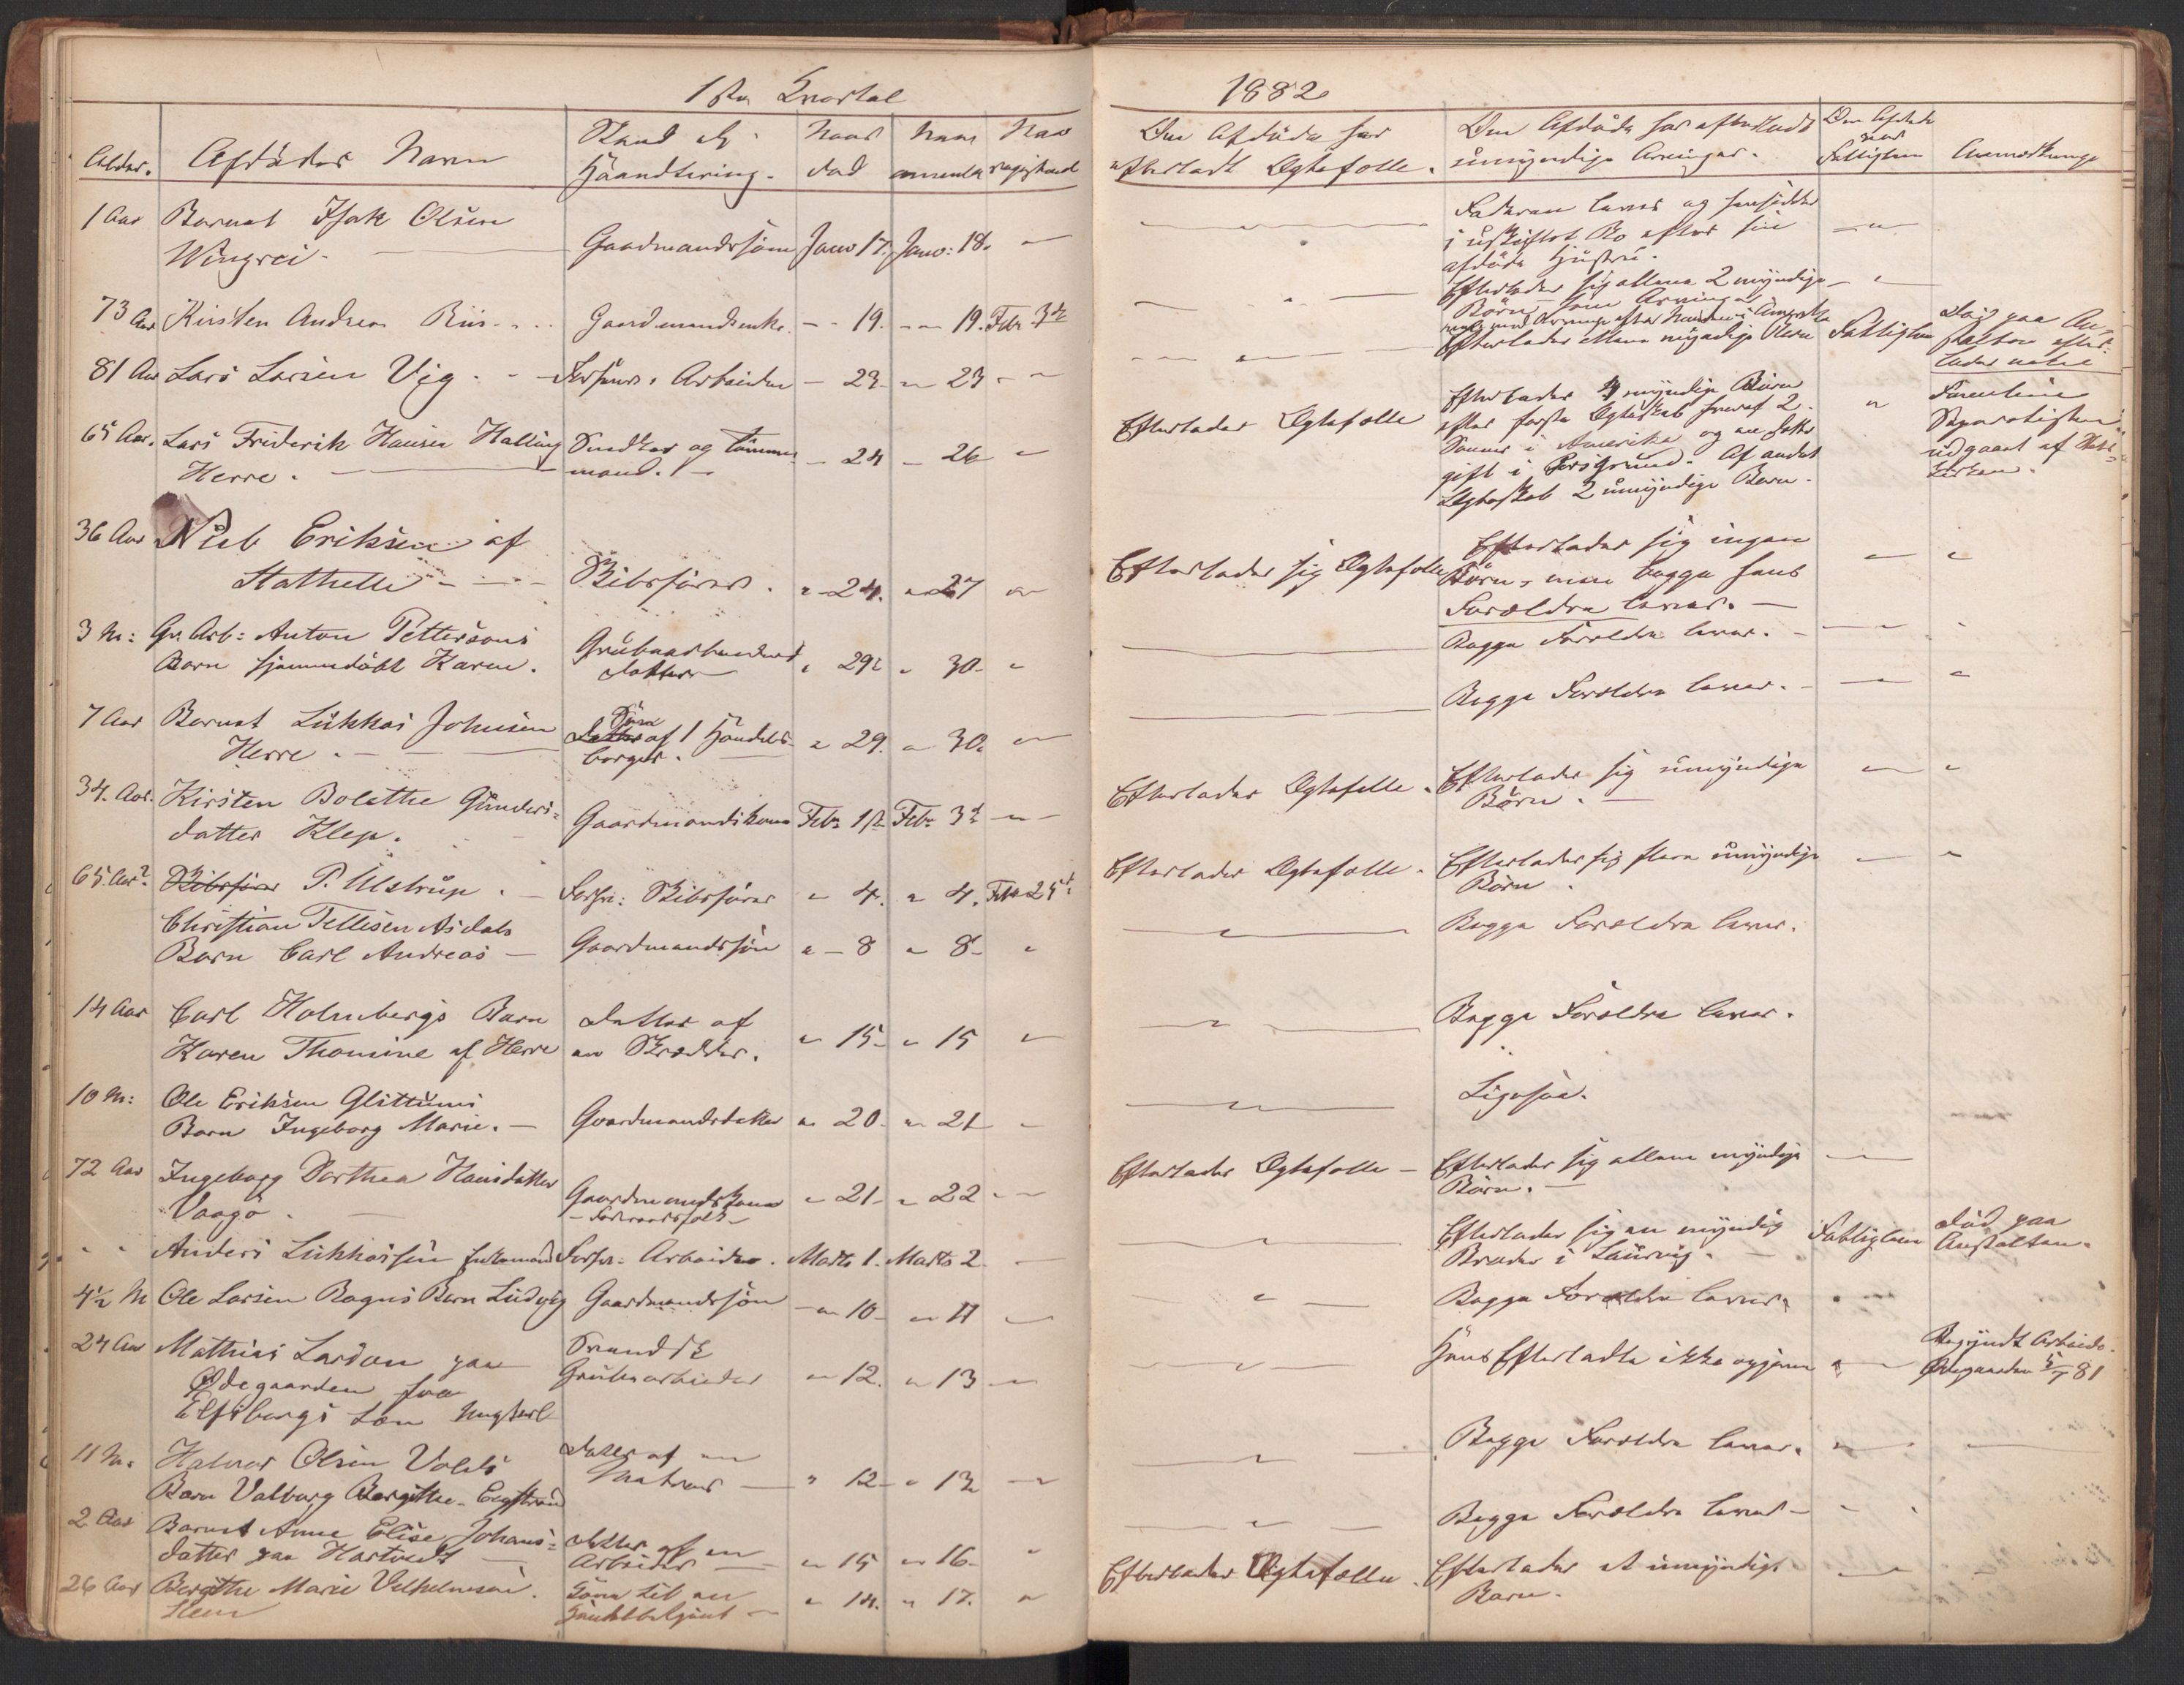 1ste Kvartal
1882
Alder.
Afdødes Navn
Stand og
Haandtering.
Naar
død
Naar
anmeldt
Naar
registreret
Den Afdøde har
efterladt Ægtefælle.
Den Afdøde har efterladt
umyndige Arvinger.
Den Afdøde
var
Fattiglem
Anmærkninger
1 Aar Barnet Isak Olsen
Wingrei. Gaardmandssøn Janr 17. Janr: 18.
Faderen lever og hensidder
i uskiftet Bo efter sin
afdøde Hustru.
73 Aar Kirsten Andrea Riis Gaardmandsenke. 19. 19. Febr 3die
Efterlader sig allene 2 myndige
Børn som Arvinger
81 Aar Lars Larsen Vig Forhenv. Arbeider 23 23
Efterlader allene myndige Børn Fattiglem
Død paa An-
stalten efter-
lader intet
65 Aar. Lars Friderik Hansen Halling Snedker og Tømmer-
Herre. mand. 24 26
Efterlader Ægtefælle
Efterlader 4 myndige Børn
efter første Ægteskab hvoraf 2
Sønner i Amerika og en Datter
gift i Porsgrund. Af andet
Ægteskab 2 umyndige Børn.
udgaaet af Stats-
kirken.
36 Aar Niels Eriksen af
Stathelle Skibsfører. 24. 27
Efterlader sig Ægtefælle
Efterlader sig ingen
Børn, men begge hans
Forældre lever.
3 M: Gr. Arb: Anton Pettersons
Barn hjemmedøbt Karen. Grubearbeiders
Datter 29 30
Begge Forældre lever.
7 Aar Barnet Lukkas Johnsen
Herre. Søn
Datter af 1 Handels-
borger. 29. 30.
Begge Forældre lever.
34. Aar. Kirsten Bolethe Gunders-
datter Klep. Gaardmandskone Febr 1ste Febr 3die
Efterlader Ægtefælle. Efterlader sig umyndige
Børn.
65 Aar? Skibsfører P. Ulstrup. Forhv: Skibsfører 4. 4. Febr 25
Efterlader Ægtefælle. Efterlader sig flere umyndige
Børn.
Christian Tellesen Asdals
Barn Carl Andreas Gaardmandssøn 8 8
Begge Forældre lever.
14 Aar Carl Holmbergs Barn
Karen Thomine af Herre Datter af
en Skrædder. 15 15
Begge Forældre lever.
10 M: Ole Eriksen Glittums
Barn Ingeborg Marie. Gaardmandsdatter 20 21
Ligesaa.
72 Aar Ingeborg Dorthea Hansdatter
Vaagø. Gaardmandskone
Foderaadsfolk 21 22
Efterlader Ægtefælle Efterlader sig allene myndige
Børn.
Anders Lukkassen Forhv: Arbeider. Marts 1. Marts 2.
Efterlader sig en myndig
Broder i Laurvig. Fattiglem Død paa
Anstalten.
4½ M Ole Larsen Rognes Barn Ludvig Gaardmandssøn 10 11
Begge Forældre lever.
24 Aar Mathias Lardon paa
Ødegaarden fra
Elfsborgs Len Ungkarl Svensk
Grubearbeider 12. 13
Hans Efterladte ikke opgivne
Begyndt Arbeide
Ødegaarden 81
11 M. Halvor Olsen Volds
Barn Valborg Bergithe Datter af en
Matros 12 13
Begge Forældre lever.
2 Aar Barnet Anne Elise Johans-
datter paa Hartvedt Datter af en
Arbeider 15 16
Begge Forældre lever
26 Aar Bergithe Marie Vilhelmsen.
Kone til en
Handelsbetjent 14. 17.
Efterlader Ægtefælle. Efterlader et umyndigt
Barn.